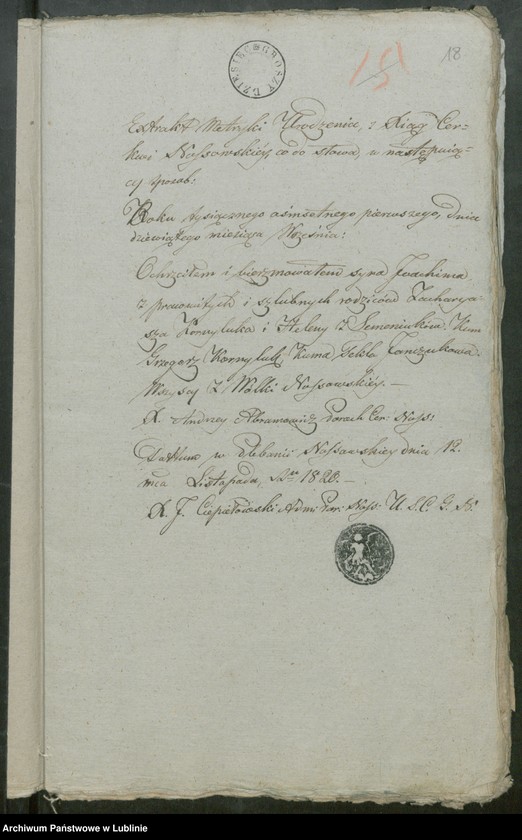 DZIESIĘC GROSZY
15
18
Extrakt Metryki Urodzenia, z Xiąg Cer=
kwi Nossowskiéy, co do słowa, w następuią=
cy sposób:
Roku tysiącznego ośmsetnego pierwszego, dnia
dziewiątego miesiąca Września:
Ochrzciłem i bierzmowałem syna Joachima,
z prawowitych i szlubnych rodziców Zacharya=
sza Kornyluka i Heleny z Semeniuków. Kum
Grzegorz Kornyluk, Kuma Tekla Janczukowa.
Wszyscy z Wólki Nossowskiéy. —
X. Andrzey Abramowicz Paroch Cer: Noss:
Dattum w Plebanii Nossowskiey dnia 12.
mca Listopada, 1828. —
X. J. Ciepałowski Adm: Par: Noss: U. S. C. G. N.
Archiwum Państwowe w Lublinie